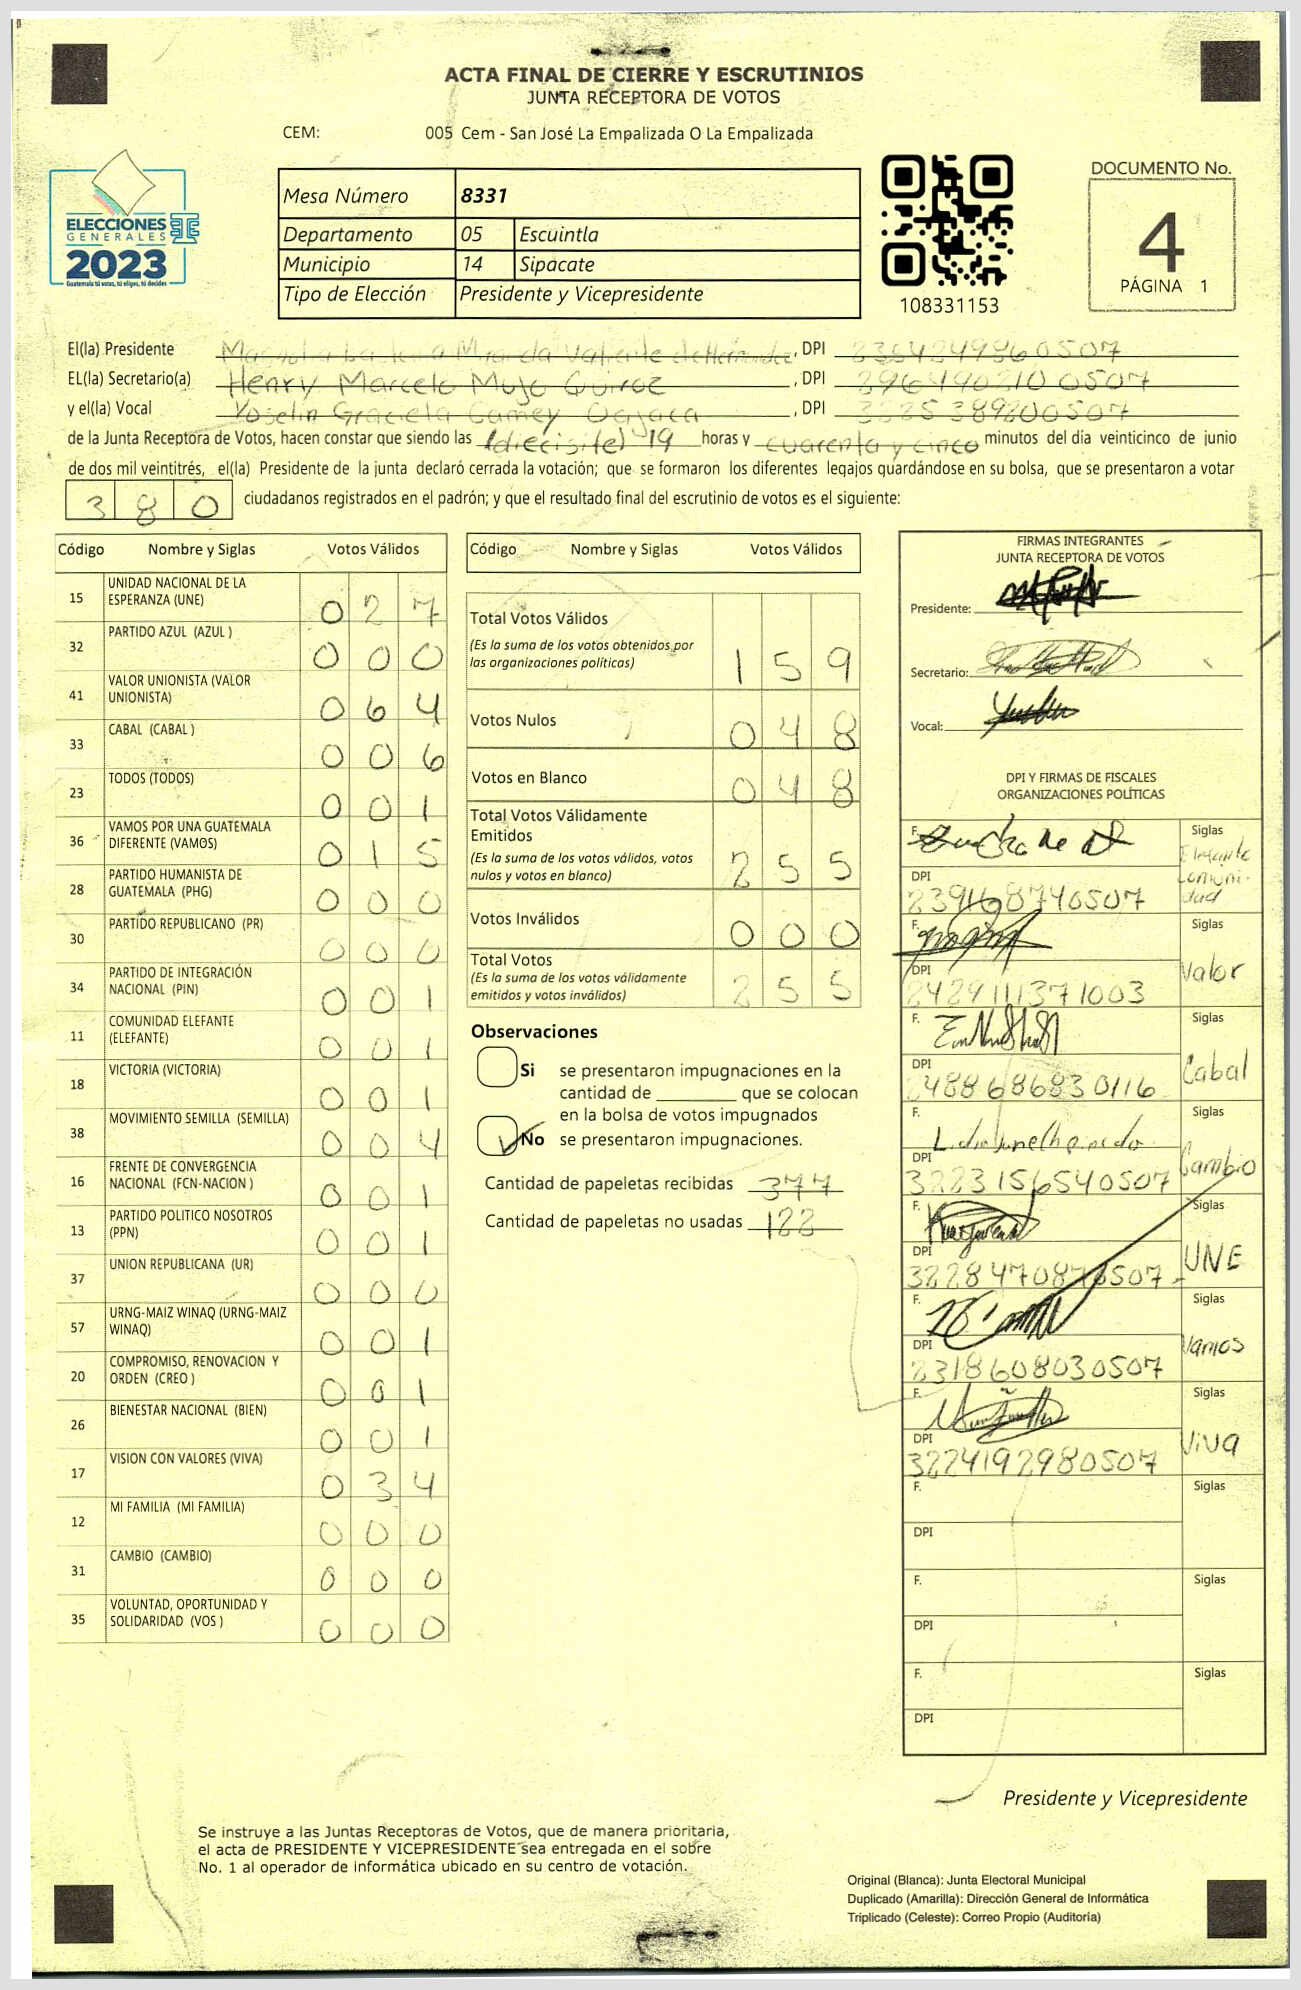 ACTA FINAL DE CIERRE Y ESCRUTINIOS
JUNTA RECEPTORA DE VOTOS
CEM: 005 Cem - San José La Empalizada O La Empalizada
ELECCIONES
GENERALES
2023
Guatemala tú votas, tú eliges, tú decides
Mesa Número 8331
Departamento 05 Escuintla
Municipio 14 Sipacate
Tipo de Elección Presidente y Vicepresidente
108331153
DOCUMENTO No.
4
PÁGINA 1
El(la) Presidente Miranda Valiente de Hernandez, DPI
EL(la) Secretario(a) Henry Marcelo Mujo Quiroz, DPI 2964190210507
y el(la) Vocal Yoselin Graciela Camey Oajaca, DPI
de la Junta Receptora de Votos, hacen constar que siendo las (diecisite) 19 horas y cuarenta y cinco minutos del día veinticinco de junio
de dos mil veintitrés, el(la) Presidente de la junta declaró cerrada la votación; que se formaron los diferentes legajos guardándose en su bolsa, que se presentaron a votar
380 ciudadanos registrados en el padrón; y que el resultado final del escrutinio de votos es el siguiente:
Código Nombre y Siglas Votos Válidos
15 UNIDAD NACIONAL DE LA ESPERANZA (UNE) 027
32 PARTIDO AZUL (AZUL ) 000
41 VALOR UNIONISTA (VALOR UNIONISTA) 064
33 CABAL (CABAL ) 006
23 TODOS (TODOS) 001
36 VAMOS POR UNA GUATEMALA DIFERENTE (VAMOS) 015
28 PARTIDO HUMANISTA DE GUATEMALA (PHG) 000
30 PARTIDO REPUBLICANO (PR) 000
34 PARTIDO DE INTEGRACIÓN NACIONAL (PIN) 001
11 COMUNIDAD ELEFANTE (ELEFANTE) 001
18 VICTORIA (VICTORIA) 001
38 MOVIMIENTO SEMILLA (SEMILLA) 004
16 FRENTE DE CONVERGENCIA NACIONAL (FCN-NACION ) 001
13 PARTIDO POLITICO NOSOTROS (PPN) 001
37 UNION REPUBLICANA (UR) 000
57 URNG-MAIZ WINAQ (URNG-MAIZ WINAQ) 001
20 COMPROMISO, RENOVACION Y ORDEN (CREO ) 001
26 BIENESTAR NACIONAL (BIEN) 001
17 VISION CON VALORES (VIVA) 034
12 MI FAMILIA (MI FAMILIA) 000
31 CAMBIO (CAMBIO) 000
35 VOLUNTAD, OPORTUNIDAD Y SOLIDARIDAD (VOS ) 000
Código Nombre y Siglas Votos Válidos
Total Votos Válidos
(Es la suma de los votos obtenidos por
las organizaciones políticas) 159
Votos Nulos 048
Votos en Blanco 048
Total Votos Válidamente
Emitidos
(Es la suma de los votos válidos, votos
nulos y votos en blanco) 255
Votos Inválidos 000
Total Votos
(Es la suma de los votos válidamente
emitidos y votos inválidos) 255
Observaciones
Si se presentaron impugnaciones en la
cantidad de ________ que se colocan
en la bolsa de votos impugnados
No se presentaron impugnaciones.
Cantidad de papeletas recibidas 377
Cantidad de papeletas no usadas 122
FIRMAS INTEGRANTES
JUNTA RECEPTORA DE VOTOS
Presidente:
Secretario:
Vocal:
DPI Y FIRMAS DE FISCALES
ORGANIZACIONES POLÍTICAS
F. Siglas
Elefante
comuni-
dad
DPI
F. Siglas
Valor
DPI 2429111371003
F. Siglas
Cabal
DPI 2488686830116
F. Siglas
Cambio
DPI 3223156540507
F. Siglas
UNE
DPI 3228470870507
F. Siglas
Vamos
DPI 2318608030507
F. Siglas
Viva
DPI 3224192980507
F. Siglas
DPI
F. Siglas
DPI
F. Siglas
DPI
Presidente y Vicepresidente
Se instruye a las Juntas Receptoras de Votos, que de manera prioritaria,
el acta de PRESIDENTE Y VICEPRESIDENTE sea entregada en el sobre
No. 1 al operador de informática ubicado en su centro de votación.
Original (Blanca): Junta Electoral Municipal
Duplicado (Amarilla): Dirección General de Informática
Triplicado (Celeste): Correo Propio (Auditoría)